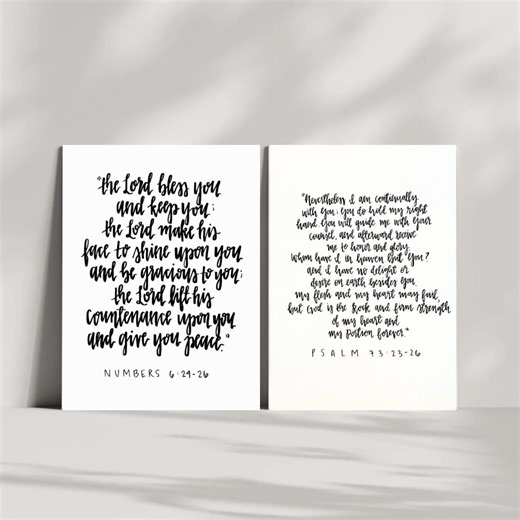 "the Lord bless you
and keep you;
the Lord make his
face to shine upon you
and be gracious to you;
the Lord lift his
countenance upon you
and give you peace."
NUMBERS 6:24-26
"Nevertheless I am continually
with you; you do hold my right
hand. You will guide me with your
counsel, and afterward receive
me to honor and glory.
Whom have I in heaven but you?
and I have no delight or
desire on earth besides you.
my flesh and my heart may fail,
but God is the Rock and firm strength
of my heart and
my Portion forever."
PSALM 73:23-26